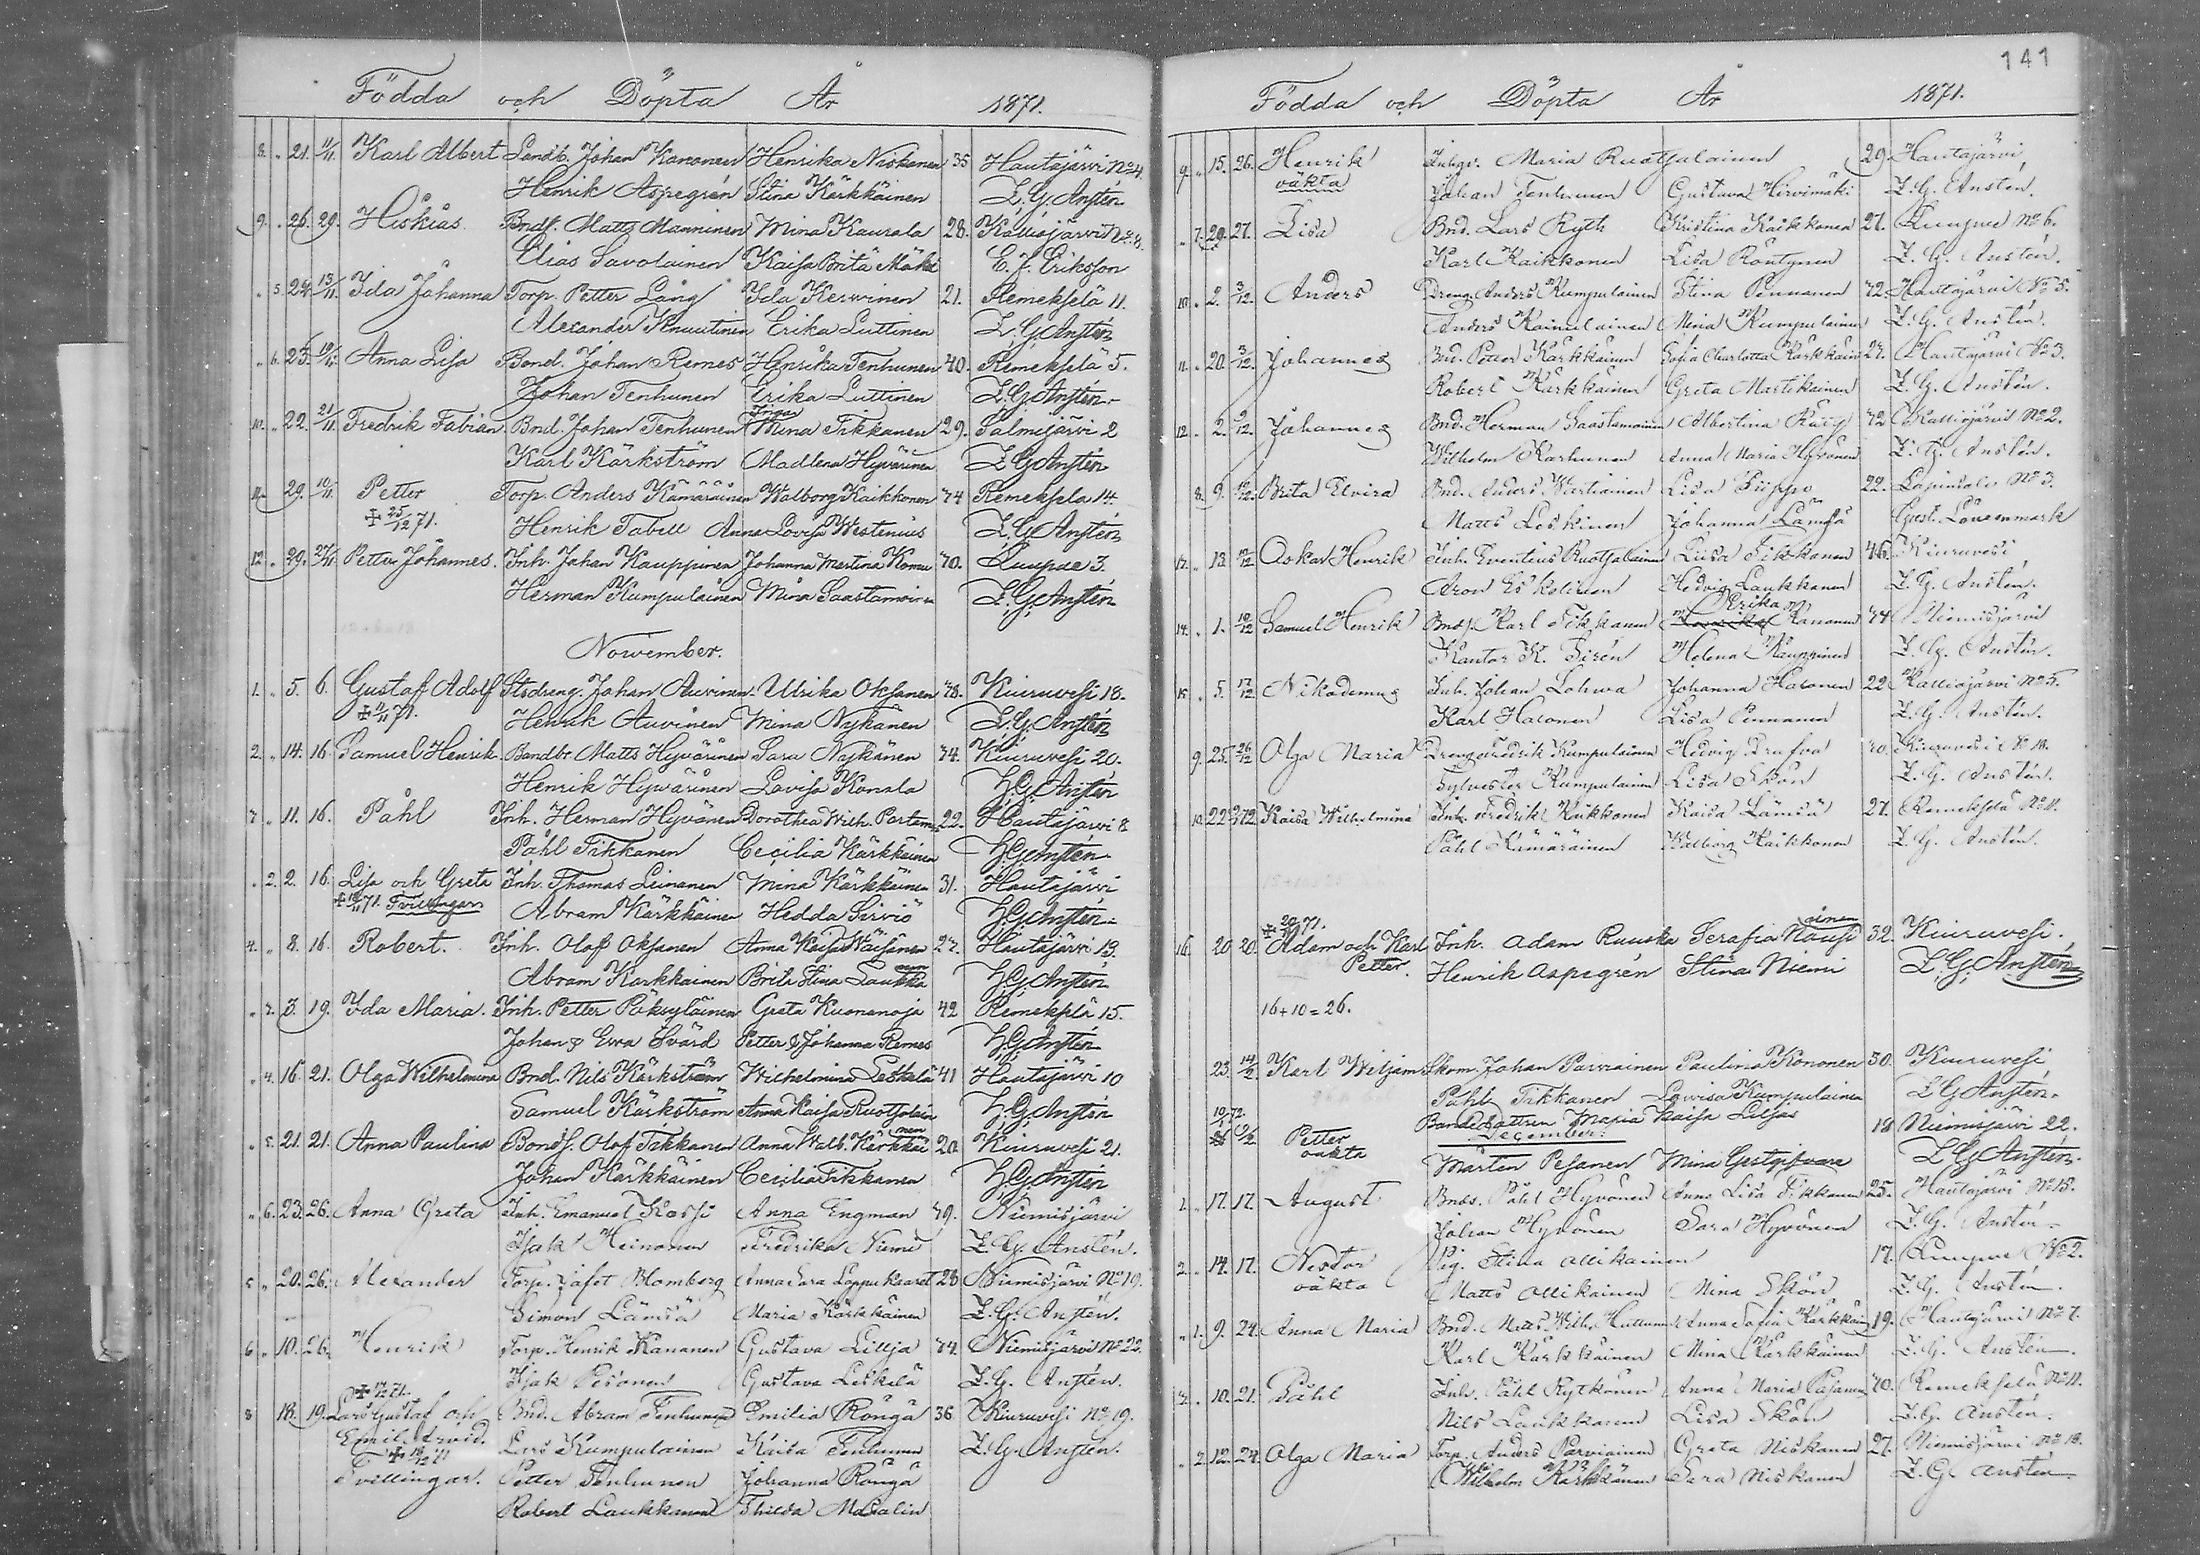 Födda och Döpta År 1871.
8. " 21. 11/11. Karl Albert Landb. Johan Kananen Henrika Niskanen 35 Hautajärvi No 4.
Henrik Aspegrén Stina Kärkkäinen L. G. Anstén
9. " 26. 29. Hiskias Bndf. Matts Manninen Mina Kaurala 28. Kalliojärvi No 8.
Elias Savolainen Kaisa Brita Mäki E. J. Eriksson
" 5. 24. 13/11. Ida Johanna Torp. Petter Lång Ida Kervinen 21. Remekselä 11.
Alexander Knuutinen Erika Luttinen L. G. Anstén
" 6. 23. 19/11. Anna Lisa Bond. Johan Remes Henrika Tenhunen 40. Remekselä 5.
Johan Tenhunen Erika Luttinen L. G. Anstén
10. " 22. 21/11 Fredrik Fabian Bnd. Johan Tenhunen Mina Tikkanen 29. Salmisjärvi 2
Karl Kärkström Madlena Hyvärinen L. G. Anstén
11. 29. 10/11. Petter Torp. Anders Kämäräinen Walborg Kaikkonen 74 Remekselä 14.
+ 25/12 71. Henrik Tabell Anna Lovisa Westenius L. G. Anstén
12. " 29. 27/11. Petter Johannes. Inh. Johan Kauppinen Johanna Martina Komu 70. Luupue 3.
Herman Kumpulainen Mina Saastamoinen L. G. Anstén
November.
1. " 5. 6. Gustaf Adolf Stsdreng. Johan Auvinen Ulrika Oksanen 78. Kiuruvesi 18.
+ 11/11 71. Henrik Auvinen Mina Nykänen L. G. Anstén
2. " 14. 16. Samuel Henrik Bondbr. Matts Hyvärinen Sara Nykänen 74. Kiuruvesi 20.
Henrik Hyvärinen Lovisa Konala L. G. Anstén
11. 16. Påhl Inh. Herman Hyvönen Dorothea Wilh. 22. Hautajärvi 8
Påhl Tikkanen Cecilia Kärkkäinen L. G. Anstén
" 2. 2. 16. Lisa och Greta Inh. Thomas Leinanen Mina Kärkkäinen 31. Hautajärvi
71. Tvillingar Abram Kärkkäinen Hedda Sirviö L. G. Anstén
4. " 8. 16. Robert. Inh. Olof Oksanen Anna Kaisa Wäisänen 27. Hautajärvi 13.
Abram Karkkainen Brita Stina Laukka nen L. G. Anstén
3. 19. Ida Maria. Inh. Petter Päksyläinen Greta Kuonanoja 42 Remekselä 15.
Johan & Ewa Svärd Petter & Johanna Remes L. G. Anstén
" 4. 16. 21. Olga Wilhelmina Bnd. Nils Kärkström Wilhelmina Leskelä 41 Hautajärvi 10
Samuel Kärkström Anna Kaisa Ruotsalain L. G. Anstén
" 5. 21. 21. Anna Paulina Bonds. Olof Tikkanen Anna Walb. Kärkkäi nen 20. Kiuruvesi 21.
Johan Kärkkäinen Cecilia Tikkanen L. G. Anstén
" 6. 23. 26. Anna Greta Inh. Emanuel Kossi Anna Engman 79. Niemisjärvi
Isak Heinonen Fredrika Niemi L. G. Anstén.
5 " 20. 26. Alexander Torp. Jafet Blomberg Anna Sara 28 Niemisjärvi No 19.
Simon Lämsä Maria Kärkkäinen L. G. Anstén.
6 " 10. 26. Henrik Torp. Henrik Kananen Gustava Lillja 74. Niemisjärvi No 22.
Isak Pesonen Gustava Leskelä L. G. Anstén.
71.
8 18. 19. Lars Gustaf och Bnd. Abram Tenhunen Emilia Röngä 36 Kiuruvesi No 19.
Emil Arvid. Lars Kumpulainen Kaisa Tenhunen L. G. Anstén.
Tvillingar. Petter Tenhunen Johanna Röngä
Robert Laukkanen Thilda Masalin
141
Födda och Döpta År 1871.
9. " 15. 26. Henrik Inhys. Maria Ruotsalainen 29. Hautajärvi,
oäkta Johan Tenhunen Gustava Hirvimäki L. G. Anstén.
" 7. 29. 27. Lisa Bnd. Lars Ryth Kristina Kaikkonen 27. Luupue No 6.
Karl Kaikkonen Lisa Röntynen L. G. Anstén.
10. " 2. 3/12. Anders Dreng Anders Kumpulainen Stina Pennanen 42. Hautajärvi No 5.
Anders Kainulainen Mina Kumpulainen L. G. Anstén.
11. " 20. 3/12. Johannes Bnd. Petter Kärkkäinen Sofia Charlotta Kärkkäin 27. Hautajärvi No 3.
Robert Kärkkäinen Greta Martikainen L. G. Anstén.
12. " 2. 9/12. Johannes Bnd. Herman Saastamoinen Albertina 72 Kalliojärvi No 2.
Wilhelm Karhunen Anna Maria Hyvönen L. G. Anstén.
8. 9. Brita Elvira Bnd. Anders Wartiainen Lisa Piippo 22. Lapinsalo No 3.
Matts Leskinen Johanna Lämsä Gust. Lönnmark
13. Oskar Henrik Inh. Eventius Ruotsalainen Lisa Tikkanen 46. Kiuruvesi
Aron Eskelinen Hedvig Laukkanen L. G. Anstén.
14. " 1. 10/12 Samuel Henrik Bnds. Karl Tikkanen Erika Kananen 74 Niemisjärvi
Kantor K. Sirén Helena Kauppinen L. G. Anstén.
15. " 5. 17/12 Nikodemus Inh. Johan Lohva Johanna Halonen 22 Kalliojärvi No 5.
Karl Halonen Lisa Pennanen L. G. Anstén.
9. 25. 26/12 Olga Maria Dreng Fredrik Kumpulainen Hedvig Drufva 70. Kiuruvesi No 18.
Sylvester Kumpulainen Lisa Skön L. G. Anstén.
10. 22 72 Kaisa Wilhelmina Inh. Fredrik Kaikkonen Kaisa Lämsä 27. Remekselä No 11.
Påhl Kämäräinen Walborg Kaikkonen L. G. Anstén.
71.
16. 20 20. Adam och Karl Inh. Adam Ruuska Serafia Nousi ainen 32. Kiuruvesi.
Petter. Henrik Aspegrén Stina Niemi L. G. Anstén
16 + 10 = 26.
23. 14/2 Karl Wiljam Skom. Johan Parviainen Paulina Kononen 30. Kiuruvesi
Påhl Tikkanen Lovisa Kumpulainen L G Anstén.
10/1 72. Bondedottren Maria Kaisa Liljas 18 Niemisjärvi 22.
Petter December.
oäkta Mårten Pesanen Mina Gestgifvare L G Anstén.
1. " 17. 17. August Bnds. Påhl Hyvönen Anna Lisa Tikkanen 25. Hautajärvi No 13.
Johan Hyvönen Sara Hyvönen L. G. Anstén.
2. " 14. 17. Nestor Pig. Stina Ollikainen 17. Luupue No 2.
oäkta Matts Ollikainen Mina Skön L. G. Anstén.
" 1. 9. 24. Anna Maria Bnd. Matts Wilh. Huttunen Anna Sofia Kärkkäin 19. Hautajärvi No 7.
Karl Kärkkäinen Mina Kärkkäinen L. G. Anstén.
3. " 10. 21. Påhl Inh. Påhl Rytkönen Anna Maria Päsanen 70. Remekselä No 11.
Nils Laukkanen Lisa Skön L. G. Anstén.
" 2. 12. 24. Olga Maria Torp. Anders Parviainen Greta Niskanen 27. Niemisjärvi No 18.
Wilhelm Kärkkäinen Sara Niskanen L. G. Anstén